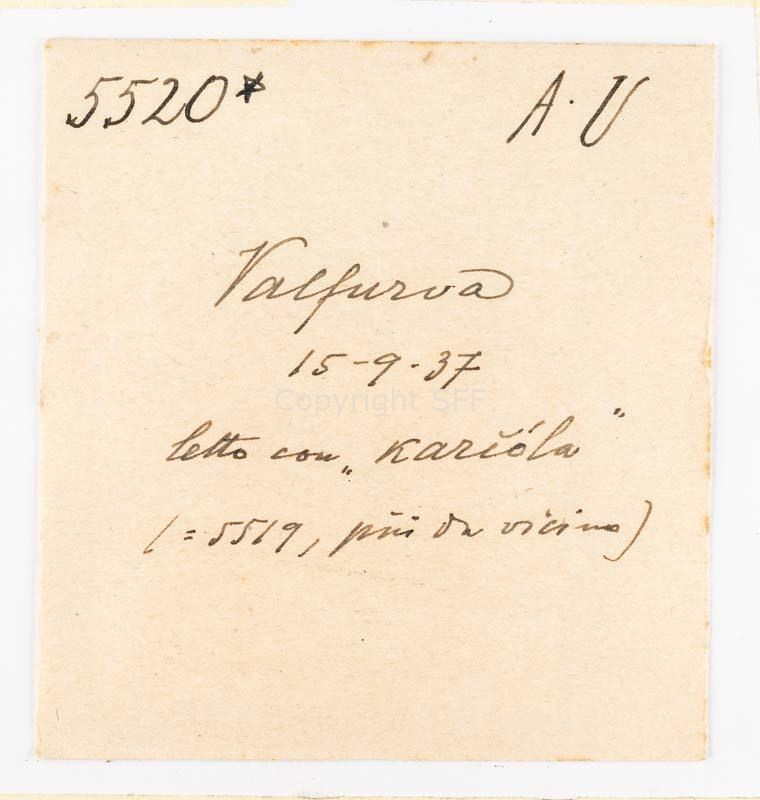 5520* A. U
Valfurva
15-9-37
Copyright SFF
letto con „karčóla“
(=5519, più da vicino)